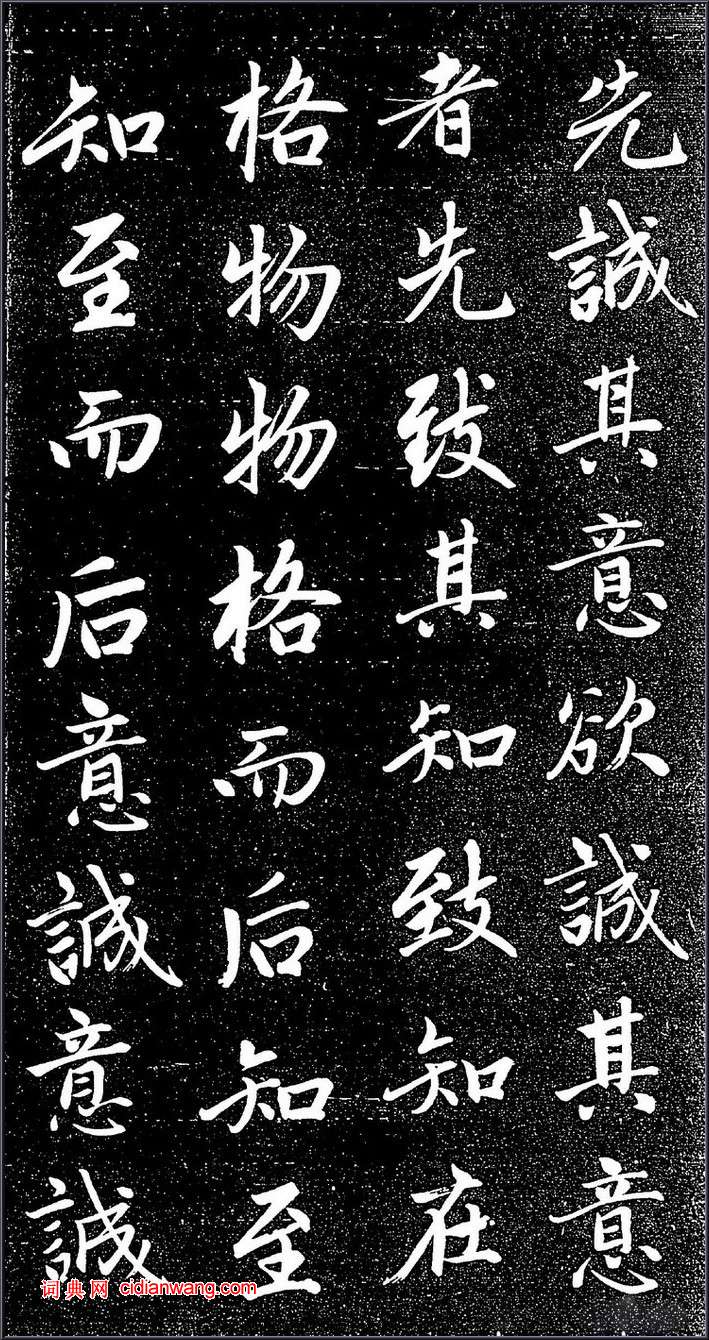 先誠其意欲誠其意
者先致其知致知在
格物物格而后知至
知至而后意誠意誠
词典网 cidianwang.com